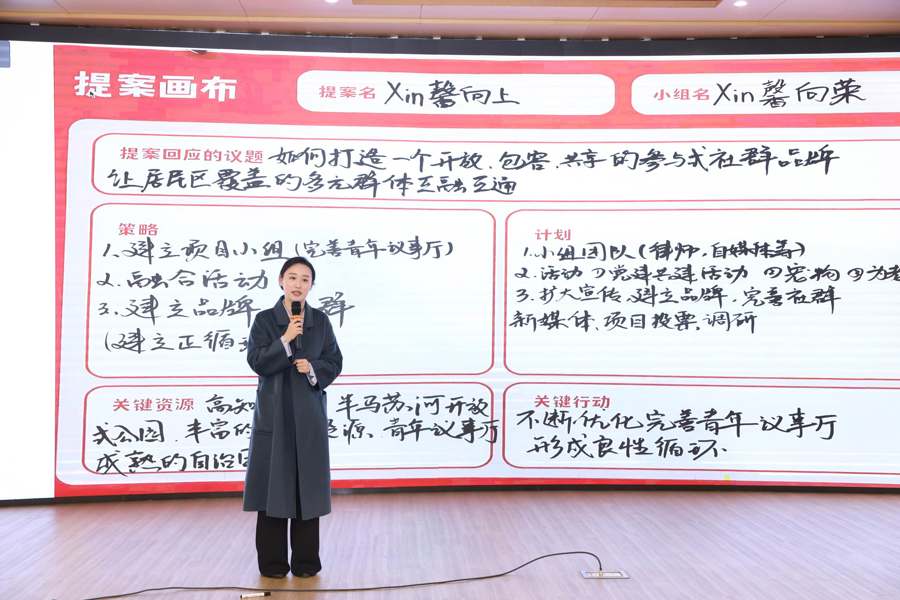 提案画布
提案名 Xin馨向上
小组名 Xin馨向荣
提案回应的议题 如何打造一个开放、包容、共享的参与式社群品牌
让居民区覆盖的多元群体互融互通
策略
1.建立项目小组(完善青年议事厅)
2.融合活动
3.建立品牌 群
(建立正循
计划
1.小组团队(律师,自媒体等)
2.活动 ①党建共建活动 ②宠物 ③为老
3.扩大宣传、建立品牌,完善社群
新媒体、项目投票、调研
关键资源 高知 半马苏河开放
式公园、丰富的 源、青年议事厅
成熟的自治
关键行动
不断优化完善青年议事厅
形成良性循环